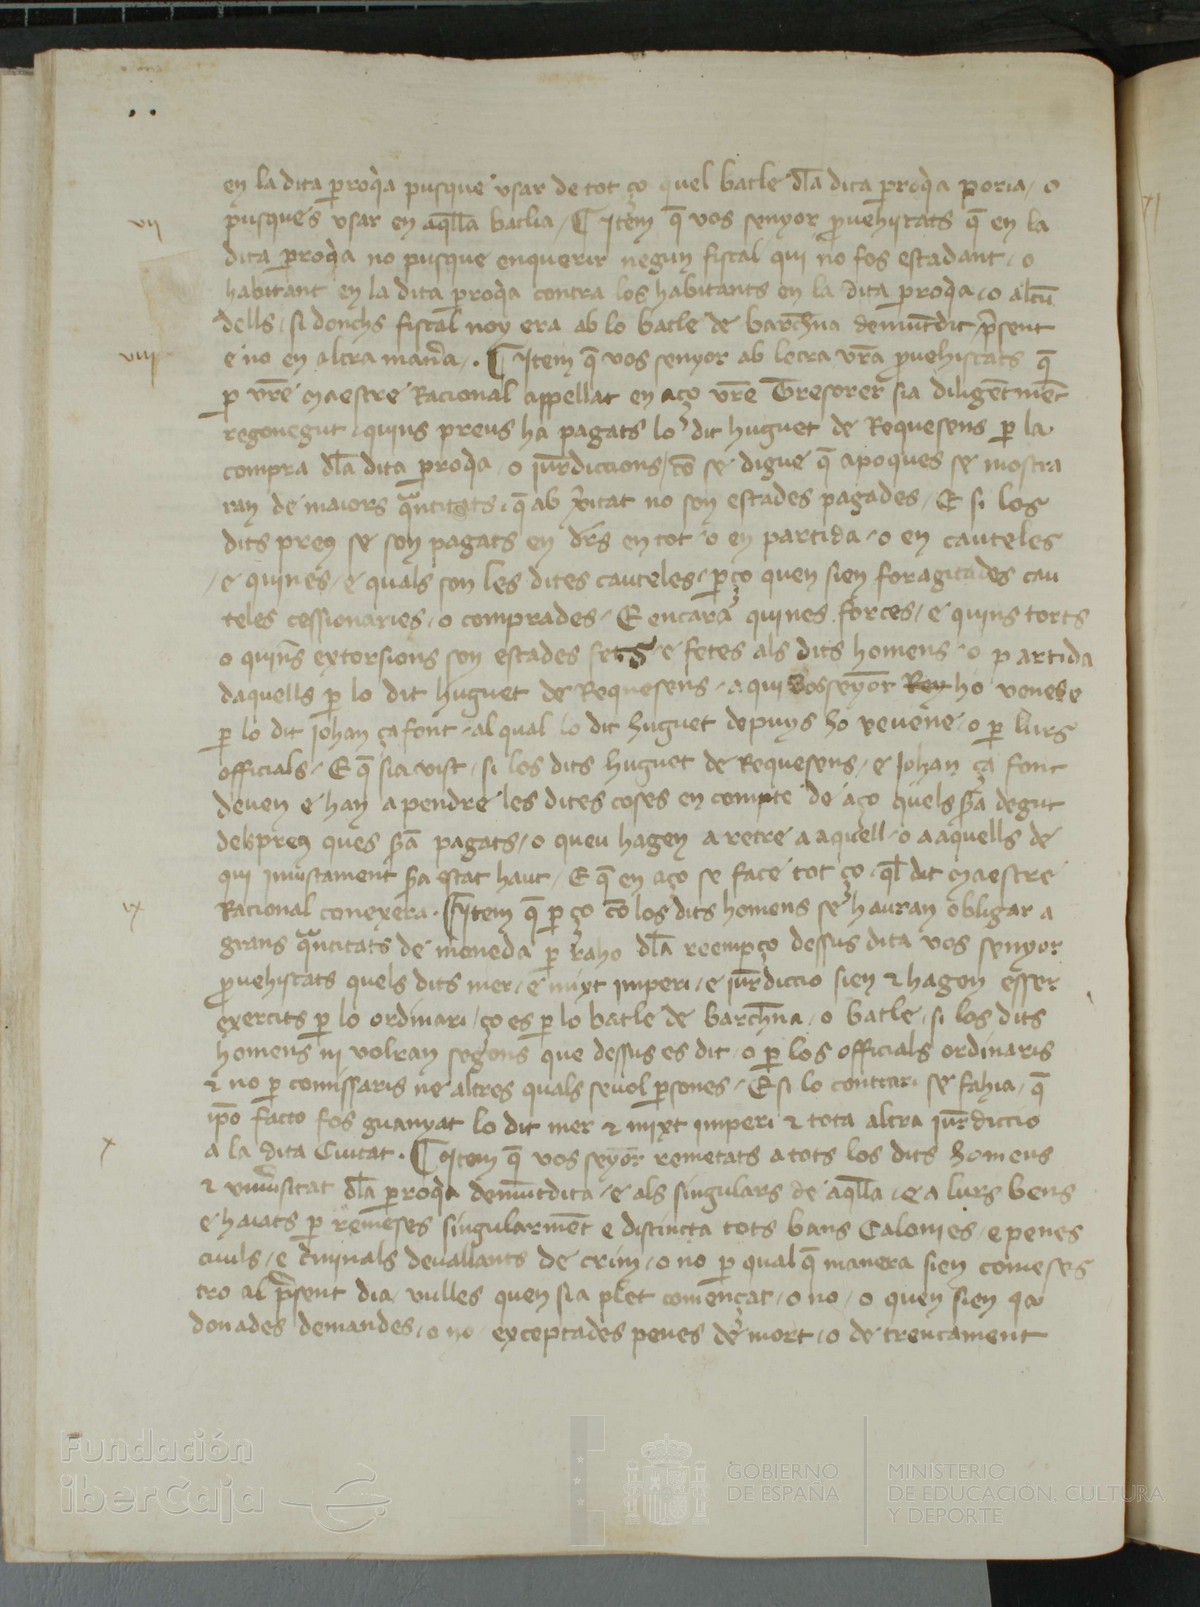 en la dita p̄roq̄a pusque usar de tot ço quel batle dl̄a dita p̄roq̄a poria / o
vii
pusques usar en aq̄ll̄a batlia / ¶ Item q̄ vos senyor p̄vehiscats q̄ en la
dita p̄roq̄a no pusque enquerir negun fiscal qui no fos estadant / o
habitant en la dita p̄roq̄a contra los habitants en la dita p̄roq̄a / o alcū
dells / si donchs fiscal noy era ab lo batle de barch̄na demūtdit p̄sent
viii
e no en altra man̄a / . ¶ Item q̄ vos senyor ab letra vr̄a p̄vehiscats q̄
p̄ vr̄e Maestre Racional appellat en aço vr̄e Tresorer sia diligētmēt
regonegut / quins preus ha pagats lo dit huguet de Requesens p̄ la
compra dl̄a dita p̄roq̄a / o iur̄diccions / cō se digue q̄ apoques se mostra
ran de maiors q̄ntitats / q̄ ab v̄itat no son estades pagades / E si los
dits preus se son pagats en drs̄ en tot / o en partida / o en cauteles
/ e quines / e quals son les dites cauteles / p̄ço quen sien foragitades cau
teles cessionaries / o comprades / E encara quines forces / e quins torts
o quins̄ extorsions son estades fets / e fetes als dits homens / o partida
daquells p̄ lo dit huguet de Requesens / a qui vos seyōr Rey ho venes e
p̄ lo dit johan ça font / al qual lo dit huguet depuys ho revene / o p̄ lurs
officials / E q̄ sia vist / si los dits huguet de Requesens / e Johan ça font
deven e han a pendre les dites coses en compte de aço quels sr̄a degut
dels preus ques sr̄a pagats / o queu hagen a retre a aquell / o a aquells de
qui injustament sr̄a estat haut / E q̄ en aço se face tot ço / ql̄ dit Maestre
ix
Racional conexera . ¶ Item q̄ p̄ ço cō los dits homens se hauran obligar a
grans q̄ntitats de moneda p̄ raho dl̄a reempço dessus dita vos senyor
p̄vehiscats quels dits mer / e mixt imperi / e iur̄diccio sien ⁊ hagen esser
exercits p̄ lo ordinari / ço es p̄ lo batle de barch̄na / o batle / si los dits
homens ni volran segons que dessus es dit / o p̄ los officials ordinaris
⁊ no p̄ comissaris ne altres quals sevol p̄sones / E si lo contrari se fahia / q̄
ip̄o facto fos guanyat lo dit mer ⁊ mixt imperi ⁊ tota altra iur̄diccio
x
a la dita Ciutat . ¶ Item q̄ vos seyor̄ remetats a tots los dits homens
⁊ univ̄sitat dl̄a p̄roq̄a demūtdita / e als singulars de aq̄ll̄a / e a lurs bens
e haiats p̄ remeses singularmēt e distincta tots bans Calonies / e penes
civils / e c̄minals devallants de crim / o no p̄ qual q̄ manera sien comeses
tro al p̄sent dia / vulles quen sia plet començat / o no / o quen sien ça
donades demandes / o no / exceptades penes de mort / o de trencament
Fundación
iberCaja
GOBIERNO
DE ESPAÑA
MINISTERIO
DE EDUCACIÓN, CULTURA
Y DEPORTE